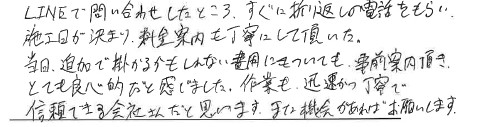 LINEで問い合わせしたところ、すぐに折り返しの電話をもらい、
施工日が決まり、料金案内も丁寧にして頂いた。
当日、追加で掛かるかもしれない費用についても、事前案内頂き、
とても良心的だと感じました。作業も、迅速かつ丁寧で
信頼できる会社さんだと思います。また機会があればお願いします。